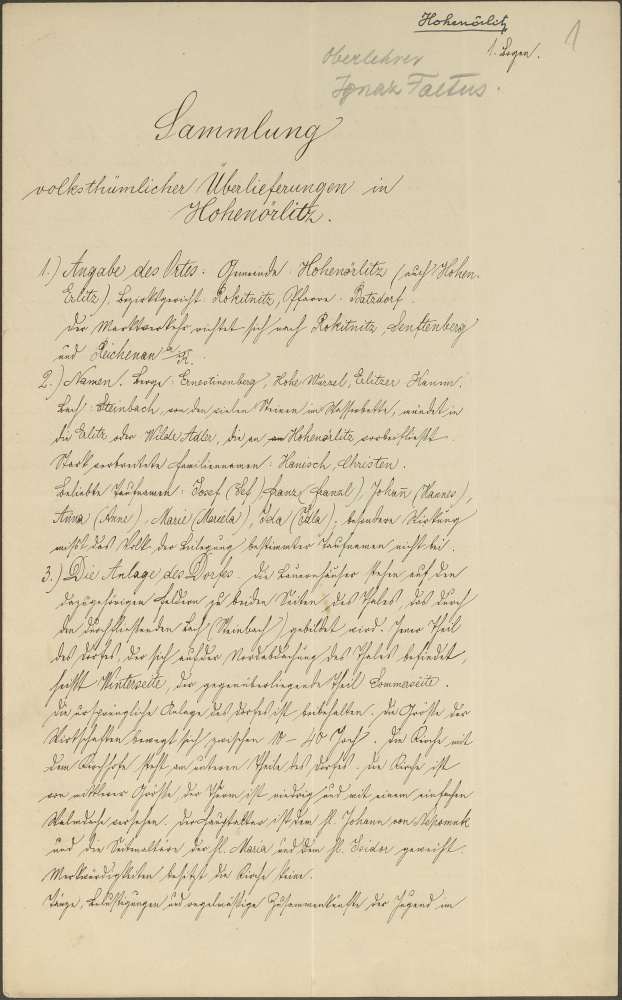 Hohenörlitz
1. Bogen.
1
Oberlehrer
Ignaz Faltus.
Sammlung
volksthümlicher Überlieferungen in
Hohenörlitz.
1.) Angabe des Ortes. Gemeinde: Hohenörlitz (auch Hohen-
Erlitz), Bezirksgericht: Rokitnitz, Pfarre: Batzdorf.
Der Marktverkehr richtet sich nach Rokitnitz, Senftenberg
und Reichenau a/K.
2.) Namen. Berge: Ernestinenberg, Hohe Wurzel, Erlitzer Kamm.
Bach: Steinbach, von den vielen Steinen im Wasserbette, mündet in
die Erlitz oder Wilde Adler, die an Hohenörlitz vorbeifließt.
Stark verbreitete Familiennamen: Hanisch, Christen.
Beliebte Taufnamen: Josef (Sef), Franz (Franzl), Johann (Hannes),
Anna (Anne), Marie (Mariela), Ida (Idla), besondere Wirkung
mißt das Volk der Beilegung bestimmter Taufnamen nicht bei.
3.) Die Anlage des Dorfes. Die Bauernhäuser stehen auf den
dazugehörigen Feldern zu beiden Seiten des Thales, das durch
den durchfließenden Bach (Steinbach) gebildet wird. Jener Theil
des Dorfes, der sich auf der Nordabdachung des Thales befindet,
heißt Winterseite, der gegenüberliegende Theil Sommerseite.
Die ursprüngliche Anlage des Dorfes ist beibehalten. Die Größe der
Wirtschaften bewegt sich zwischen 10 – 40 Joch. Die Kirche mit
dem Kirchhofe steht am unteren Theile des Dorfes. Die Kirche ist
von mittlerer Größe, der Thurm ist niedrig und mit einem einfachen
Walmdache versehen. Der Hauptaltar ist dem hl. Johann von Nepomuk
und die Seitenaltäre der hl. Maria und dem hl. Isidor geweiht.
Merkwürdigkeiten besitzt die Kirche keine.
Tänze, Belustigungen und regelmäßige Zusammenkünfte der Jugend im